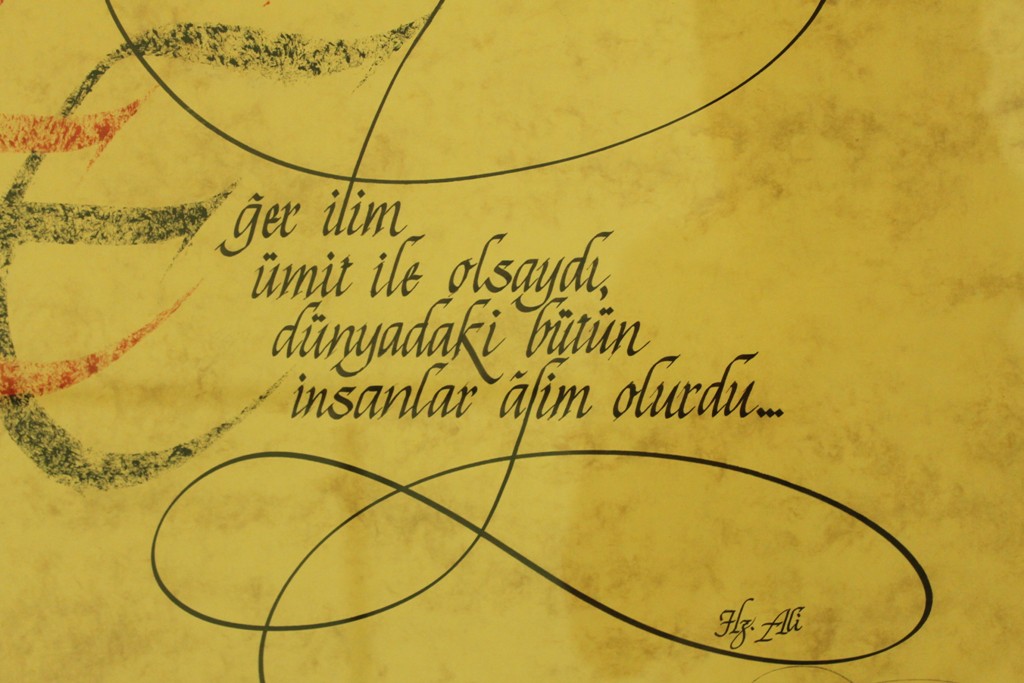 Eğer ilim
ümit ile olsaydı,
dünyadaki bütün
insanlar âlim olurdu...
Hz. Ali